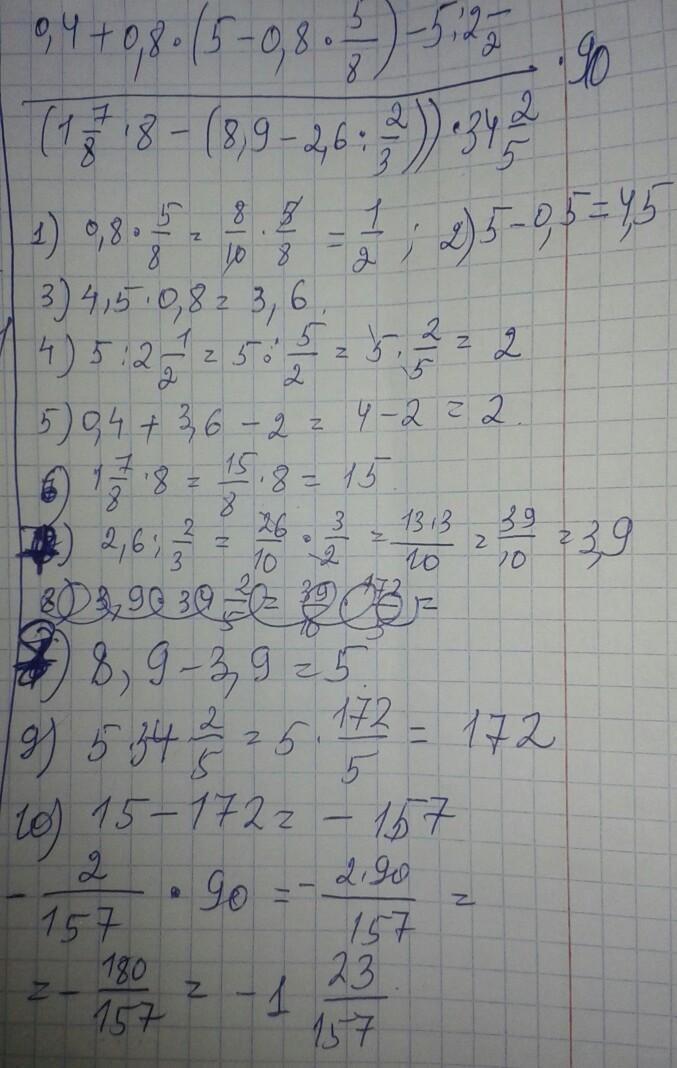 0,4+0,8·(5-0,8·5/8)-5:2 1/2
(1 7/8·8-(8,9-2,6:2/3))·34 2/5 ·90
1) 0,8·5/8=8/10·5/8=1/2; 2) 5-0,5=4,5
3) 4,5·0,8=3,6.
4) 5:2 1/2=5:5/2=5·2/5=2
5) 0,4+3,6-2=4-2=2.
6) 1 7/8·8=15/8·8=15.
) 2,6:2/3=26/10·3/2=13·3/10=39/10=3,9
8) 3,9·39 2/5=39/10·172/5=
) 8,9-3,9=5.
9) 5·34 2/5=5·172/5=172
10) 15-172=-157
-2/157·90=-2·90/157=
=-180/157=-1 23/157.